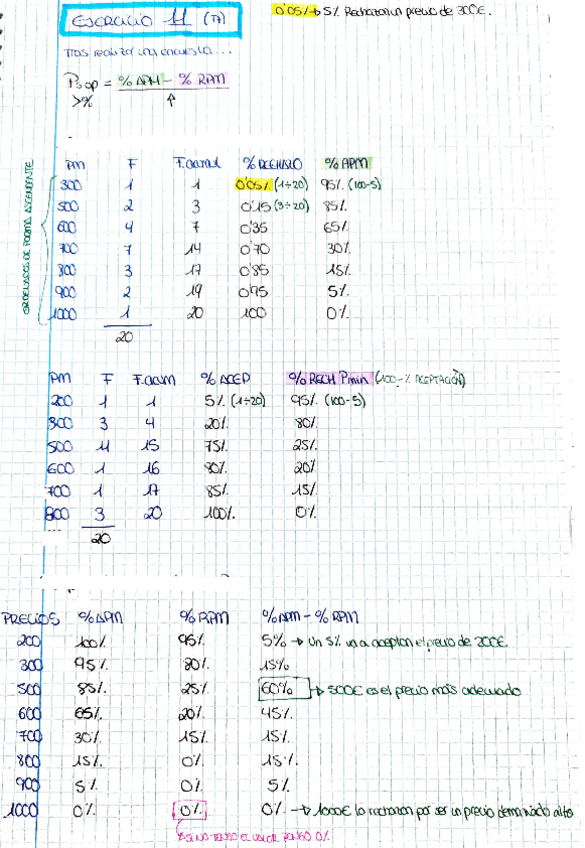 EJERCICIO 11 (T7)
0'05% → 5% Rechazan un precio de 300€.
Tras realizar una encuesta...
Psop = % APM - % RPM
>%
ORDENADOS DE FORMA ASCENDENTE
PM F F.acumul % RECHAZO % APM
300 1 1 0'05% (1÷20) 95% (100-5)
500 2 3 0'15 (3÷20) 85%
600 4 7 0'35 65%
700 7 14 0'70 30%
800 3 17 0'85 15%
900 2 19 0'95 5%
1000 1 20 100 0%
20
PM F F.acum % ACEP % RECH Pmin (100-% ACEPTACIÓN)
200 1 1 5% (1÷20) 95% (100-5)
300 3 4 20% 80%
500 11 15 75% 25%
600 1 16 80% 20%
700 1 17 85% 15%
800 3 20 100% 0%
...
20
PRECIOS % APM % RPM % APM - % RPM
200 100% 95% 5% → Un 5% va a aceptar el precio de 200€.
300 95% 80% 15%
500 85% 25% 60% → 500€ es el precio más adecuado
600 65% 20% 45%
700 30% 15% 15%
800 15% 0% 15%
900 5% 0% 5%
1000 0% 0% 0% → 1000€ lo rechazan por ser un precio demasiado alto
SI NO TENGO EL VALOR PONGO 0%